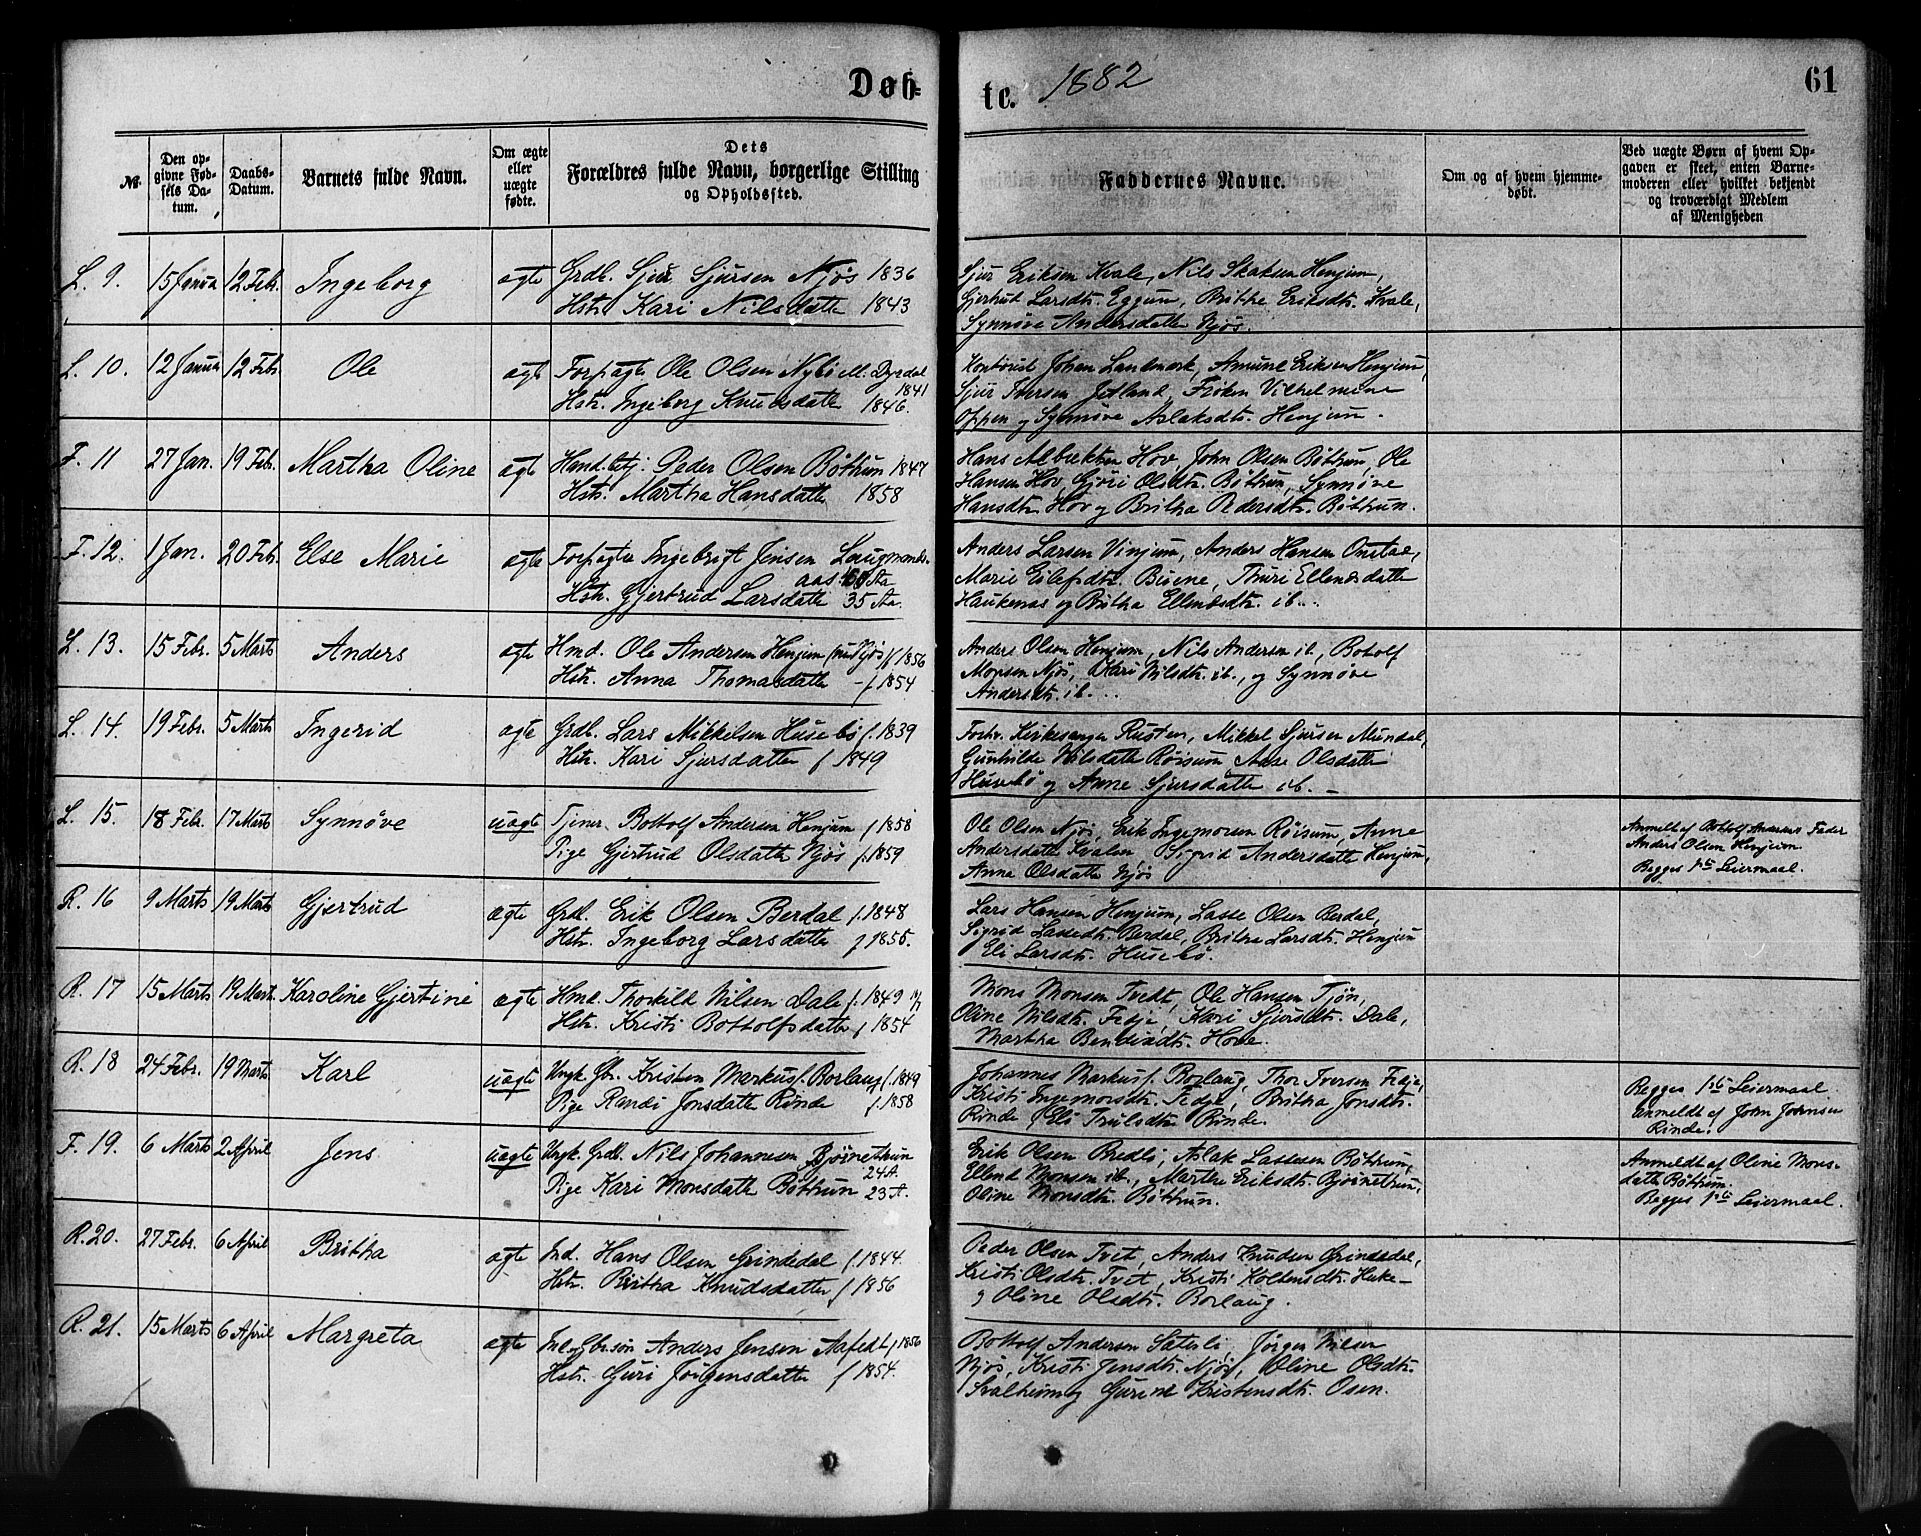 Døb-
te. 1882
61
№
Den opgivne Fødsels Datum.
Daabs-Datum.
Barnets fulde Navn.
Om ægte eller uægte fødte.
Dets Forældres fulde Navn, borgerlige Stilling og Opholdssted.
Faddernes Navne.
Om og af hvem hjemmedøbt.
Ved uægte Børn af hvem Opgaven er skeet, enten Barnemoderen eller hvilket bekjendt og troværdigt Medlem af Menigheden
L. 9. 15 Janua 12 Febr. Ingeborg ægte Grdb. Sjur Sjursen Njøs 1836
Hstr. Kari Nilsdatter 1843
Sjur Eriksen Kvale, Nils Skaksen Henjum,
Gjertrud Larsdtr. Eggum, Brithe Eriksdtr. Kvale,
Synnøve Andersdatter Njøs.
L. 10. 12 Janua 12 Febr. Ole ægte Forpagter Ole Olsen Nybø M. Dyrdal
1841
Hstr. Ingeborg Knudsdatter 1846.
Johan Landmark, Amund Eriksen Henjum,
Sjur Iversen Jetland, Frøken Vilhelmine
Oppen og Synnøve Aslaksdtr. Henjum.
F. 11 27 Jan. 19 Feb. Martha Oline ægte Peder Olsen Bøthun 1847
Hstr. Martha Hansdatter 1858
Hans Albrektsen Hov, John Olsen Bøthun, Ole
Hansen Hov, Gjøri Olsdtr. Bøthun, Synnøve
Hansdtr. Hov og Britha Pedersdtr. Bøthun.
F. 12. 1 Jan. 20 Feb. Else Marie ægte Forpagter Ingebrigt Jensen Laugmands-
aas 60 Aa
Hstr. Gjertrud Larsdatter 35 Aa.
Anders Larsen Vinjum, Anders Hansen Onstad,
Marie Eilefsdtr. Buene, Thuri Ellendsdatter
Haukenæs og Britha Ellendsdtr. ib.
L. 13. 15 Febr. 5 Marts Anders ægte Hmd. Ole Andersen Henjum (nu Njøs) f. 1856
Hstr. Anna Thomasdatter - f. 1854
Anders Olsen Henjum, Nils Andersen ib., Botolf
Monsen Njøs, Kari Nilsdtr. ib., og Synnøve
Andersdtr. ib.
L. 14. 19 Febr. 5 Marts Ingerid ægte Grdb. Lars Mikkelsen Husebø f. 1839
Hstr. Kari Sjursdatter f 1849
Forhv. Kirkesanger Rusten, Mikkel Sjursen Mundal,
Gunhilde Nilsdatter Røisum, Aase Olsdatter
Husebø og Anne Sjursdatter ib. -
L. 15. 18 Febr. 17 Marts Synnøve uægte Tjener Bottolf Andersen Henjum f 1858
Pige Gjertrud Olsdatter Njøs f. 1859
Ole Olsen Njøs, Erik Ingemorsen Røisum, Anne
Andersdatter Kvalen, Sigrid Andersdatter Henjum,
Anna Olsdatter Njøs
Anmeldt af Bottolf Andersens Fader
Anders Olsen Henjum.
Begges 1ste Leiermaal.
R. 16 9 Marts 19 Marts Gjertrud ægte Grdb. Erik Olsen Berdal f. 1848
Hstr. Ingeborg Larsdatter f 1855.
Lars Hansen Henjum, Lasse Olsen Berdal,
Sigrid Lassedtr. Berdal, Brithe Larsdtr. Henjum
Eli Larsdtr. Husebø.
R. 17 15 Marts 19 Marts Karoline Gjertine ægte Hmd. Thorkild Nilsen Dale f. 1849
Hstr. Kristi Bottolfsdatter f 1854
Mons Monsen Tvedt, Ole Hansen Tjøn,
Oline Nilsdtr. Fedje, Kari Sjursdtr. Dale,
Martha Bendixdtr. Hove.
R. 18 24 Febr. 19 Marts Karl uægte Ungk. Gbr. Kristen Markusf. Borlaug f. 1849
Pige Randi Jonsdatter Rinde f. 1858
Johannes Markusf. Borlaug, Thor Iversen Fedje,
Kristi Ingemorsdtr. Fedje, Britha Jonsdtr.
Rinde, Eli Trulsdtr. Rinde.
Begges 1ste Leiermaal.
anmeldt af John Johnsen
Rinde.
F. 19. 6 Marts 2 April Jens uægte Ungk. Grdb. Nils Johannesen Bjørnethun
24 A.
Pige Kari Monsdatter Bøthun 23 A.
Erik Olsen Bredli, Aslak Lassesen Bøthun,
Ellend Monsen ib., Marthe Eriksdtr. Bjørnethun,
Oline Monsdtr. Bøthun.
Anmeldt af Oline Mons-
datter Bøthun.
Begges 1ste Leiermaal.
R. 20. 27 Febr. 6 April Britha ægte Ind. Hans Olsen Grindedal f. 1844.
Hstr. Britha Knudsdatter f 1856
Peder Olsen Tvet, Anders Knudsen Grindedal,
Kristi Olsdtr. Tvet, Kristi
og Oline Olsdtr. Borlaug.
R. 21. 15 Marts 6 April Margreta ægte Anders Jensen Aafedt f 1856
Hstr. Guri Jørgensdatter f 1854.
Bottolf Andersen Sæterli, Jørgen Nilsen
Njøs, Kristi Jensdtr. Njøs, Oline Olsdtr.
Svalheim og Gurine Kristensdtr. Osen.